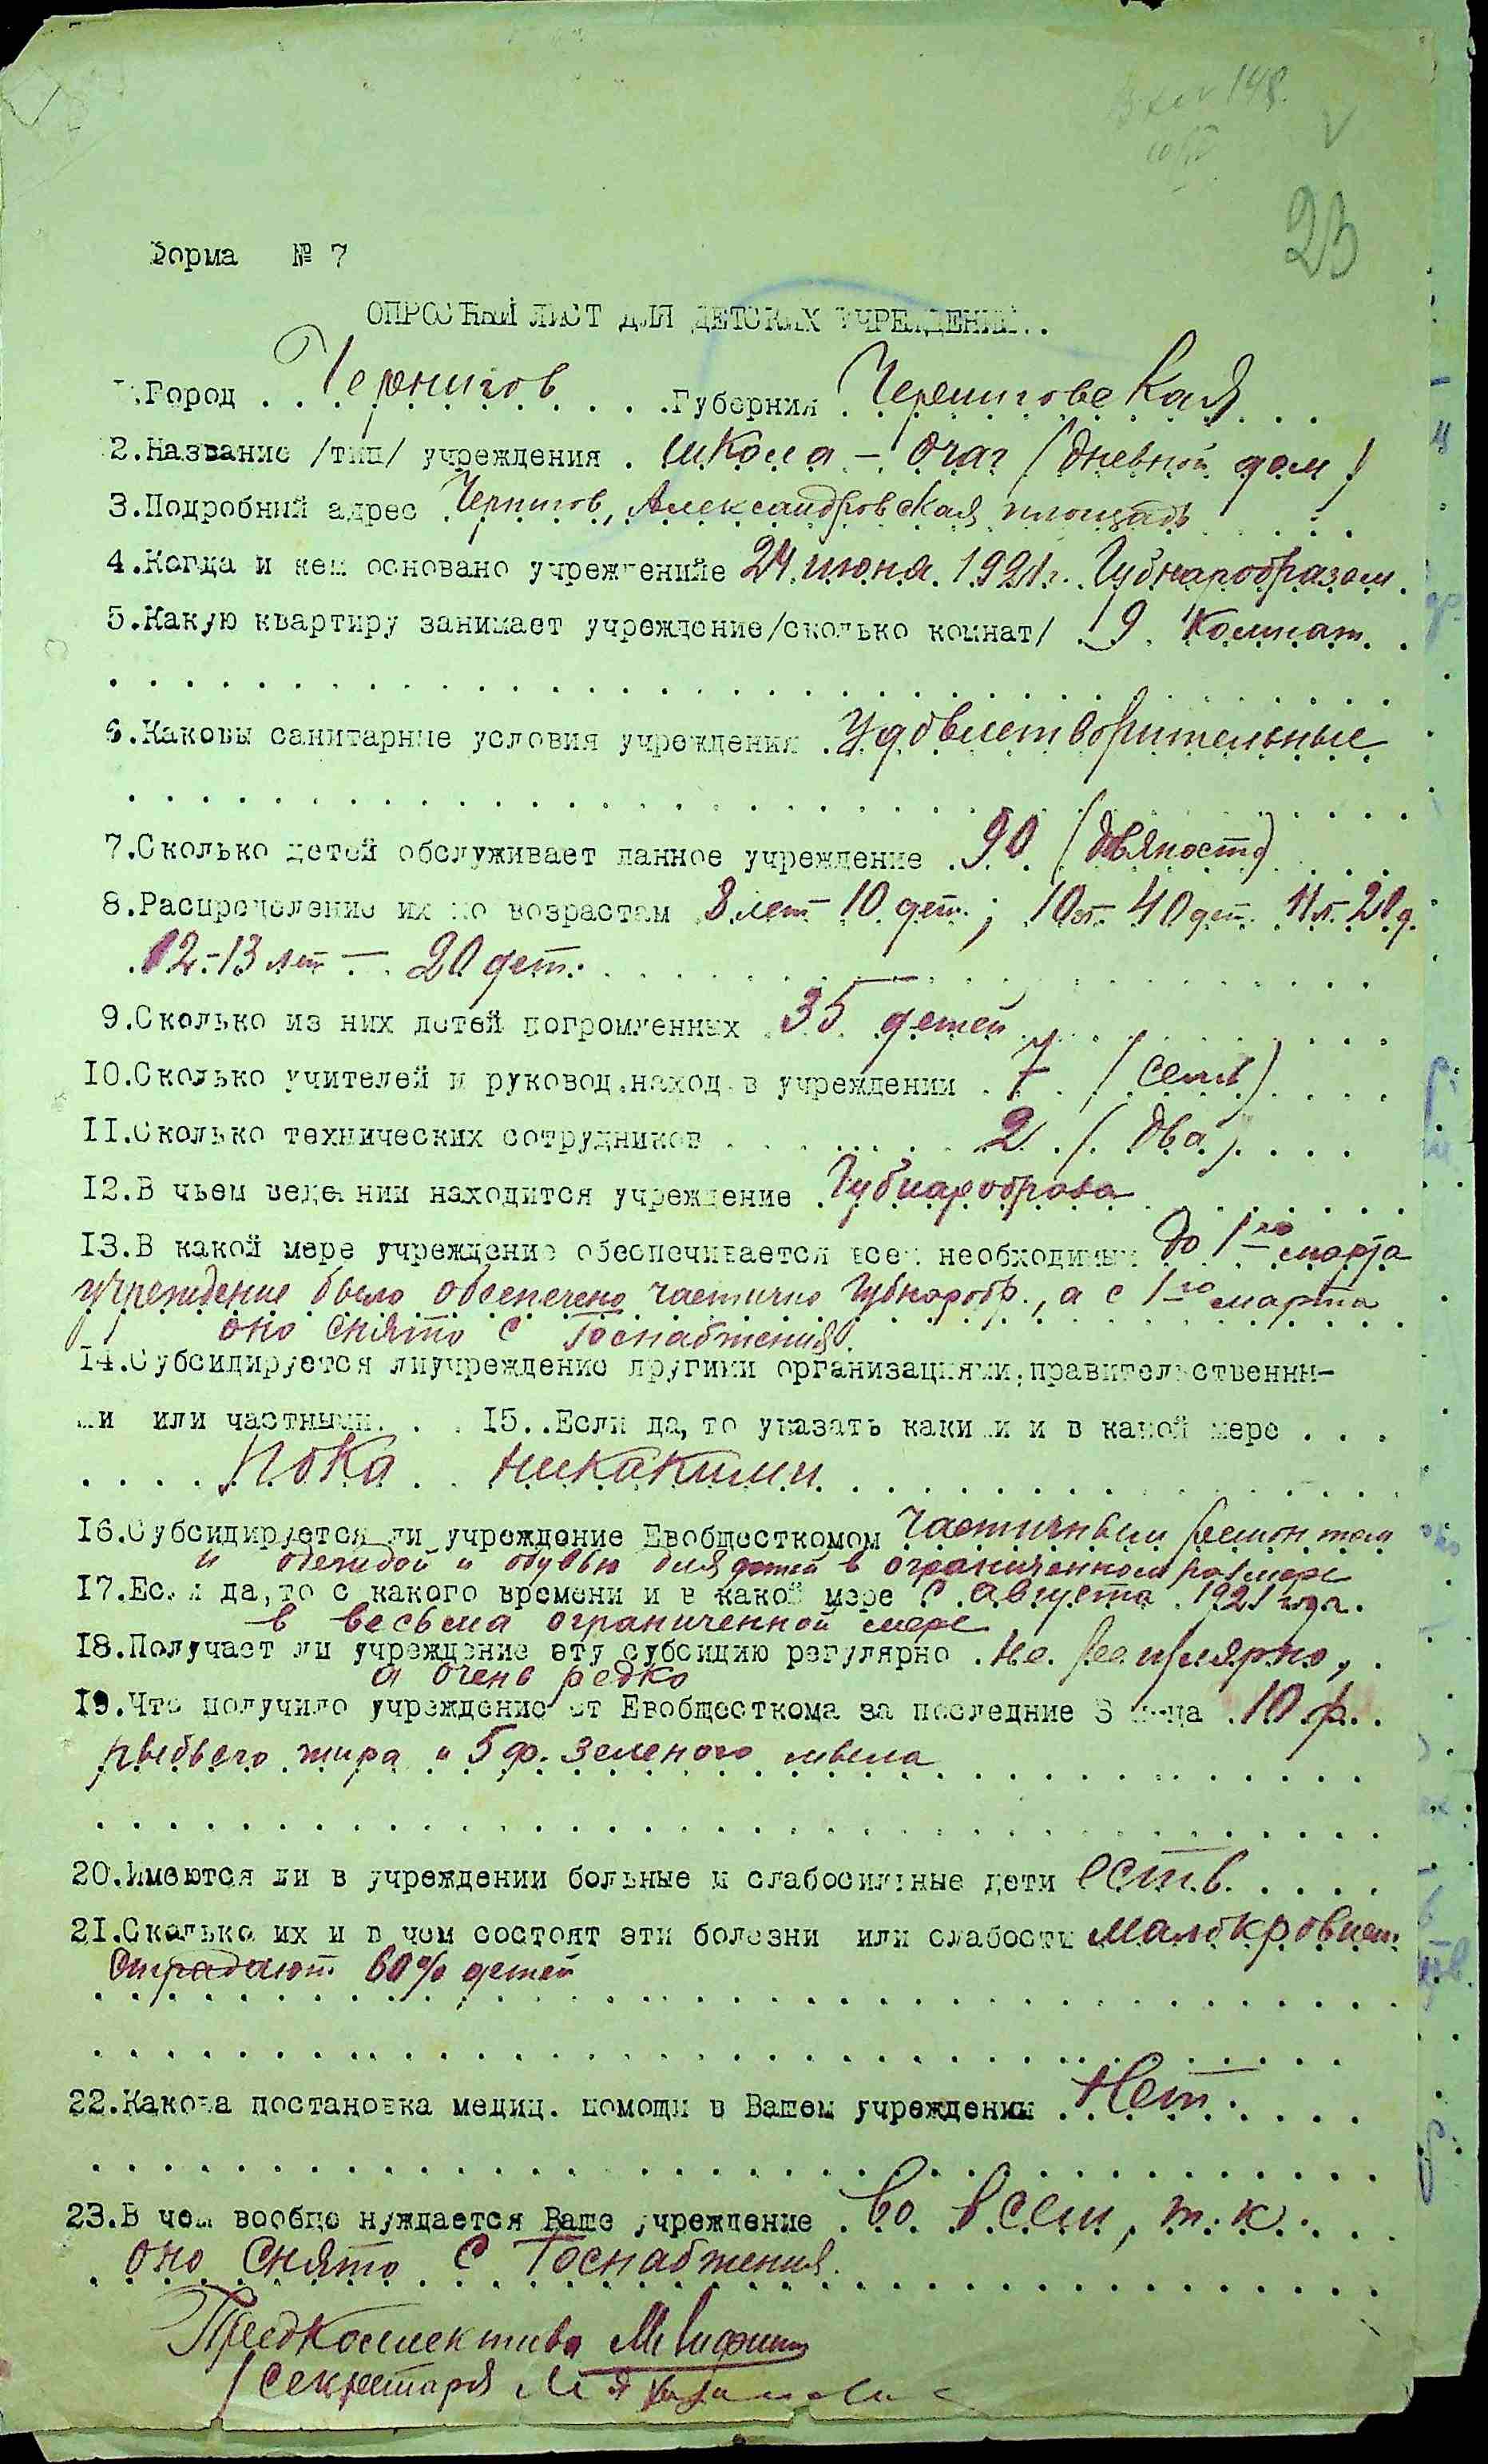 148.
23
Форма № 7
ОПРОСНЫЙ ЛИСТ ДЛЯ ДЕТСКИХ УЧРЕЖДЕНИЙ..
1.Город . . Чернигов . . . .Губерния . Черниговская . . .
2.Название /тип/ учреждения . школа – очаг (дневной дом)
3.Подробний адрес Чернигов, Александровская площадь . . . .
4.Когда и кем основано учрежденийе 24 июня 1921 г. Губнаробразом.
5.Какую квартиру занимает учреждение/сколько комнат/ 19 комнат. .
6.Каковы санитарные условия учреждения . Удовлетворительные
7.Сколько детей обслуживает данное учреждение . 90 (девяносто) . . .
8.Распределение их по возрастам 8 лет – 10 дет.; 10 л.– 40 дет. 11 л.– 20 д.
12-13 лет – 20 дет.
9.Сколько из них детей погромленных 35 детей . . . .
10.Сколько учителей и руковод.наход.в учреждении . 7 (семь) . . . .
11.Сколько технических сотрудников . . . . 2 (два) . . . .
12.В чьем ведении находится учреждение . Губнаробраза
13.В какой мере учреждение обеспечивается всем необходимым до 1го марта
учреждение было обеспечено частично Губнаробр., а с 1го марта
оно снято с Госнабжения.
14.Субсидируется лиучреждение другими организациями,правительственны-
ми или частными. . . 15..Если да,то указать какими и в какой мере . . .
. . . . Пока никакими
16.Субсидируется ли учреждение Евобщесткомом частичным ремонтом
и одеждой и обувью для детей в ограниченном размере
17.Если да,то с какого времени и в какой мере с августа 1921 года.
в весьма ограниченной мере
18.Получает ли учреждение эту субсидию регулярно . не регулярно, .
а очень редко
19.Что получило учреждение от Евобщесткома за последние 3 м-ца . 10 ф. .
рыбьего жира и 5 ф. зеленого мыла
20.Имеются ли в учреждении больные и слабосильные дети есть. . . . .
21.Сколько их и в чем состоят эти болезни или слабости малокровием
страдают 60% детей
22.Какова постановка медиц. помощи в Вашем учреждении . Нет. . . . .
23.В чем вообще нуждается Ваше учреждение . Во всем, т.к. . . .
оно снято с Госнабжения.
Предколлектива
Секретарь